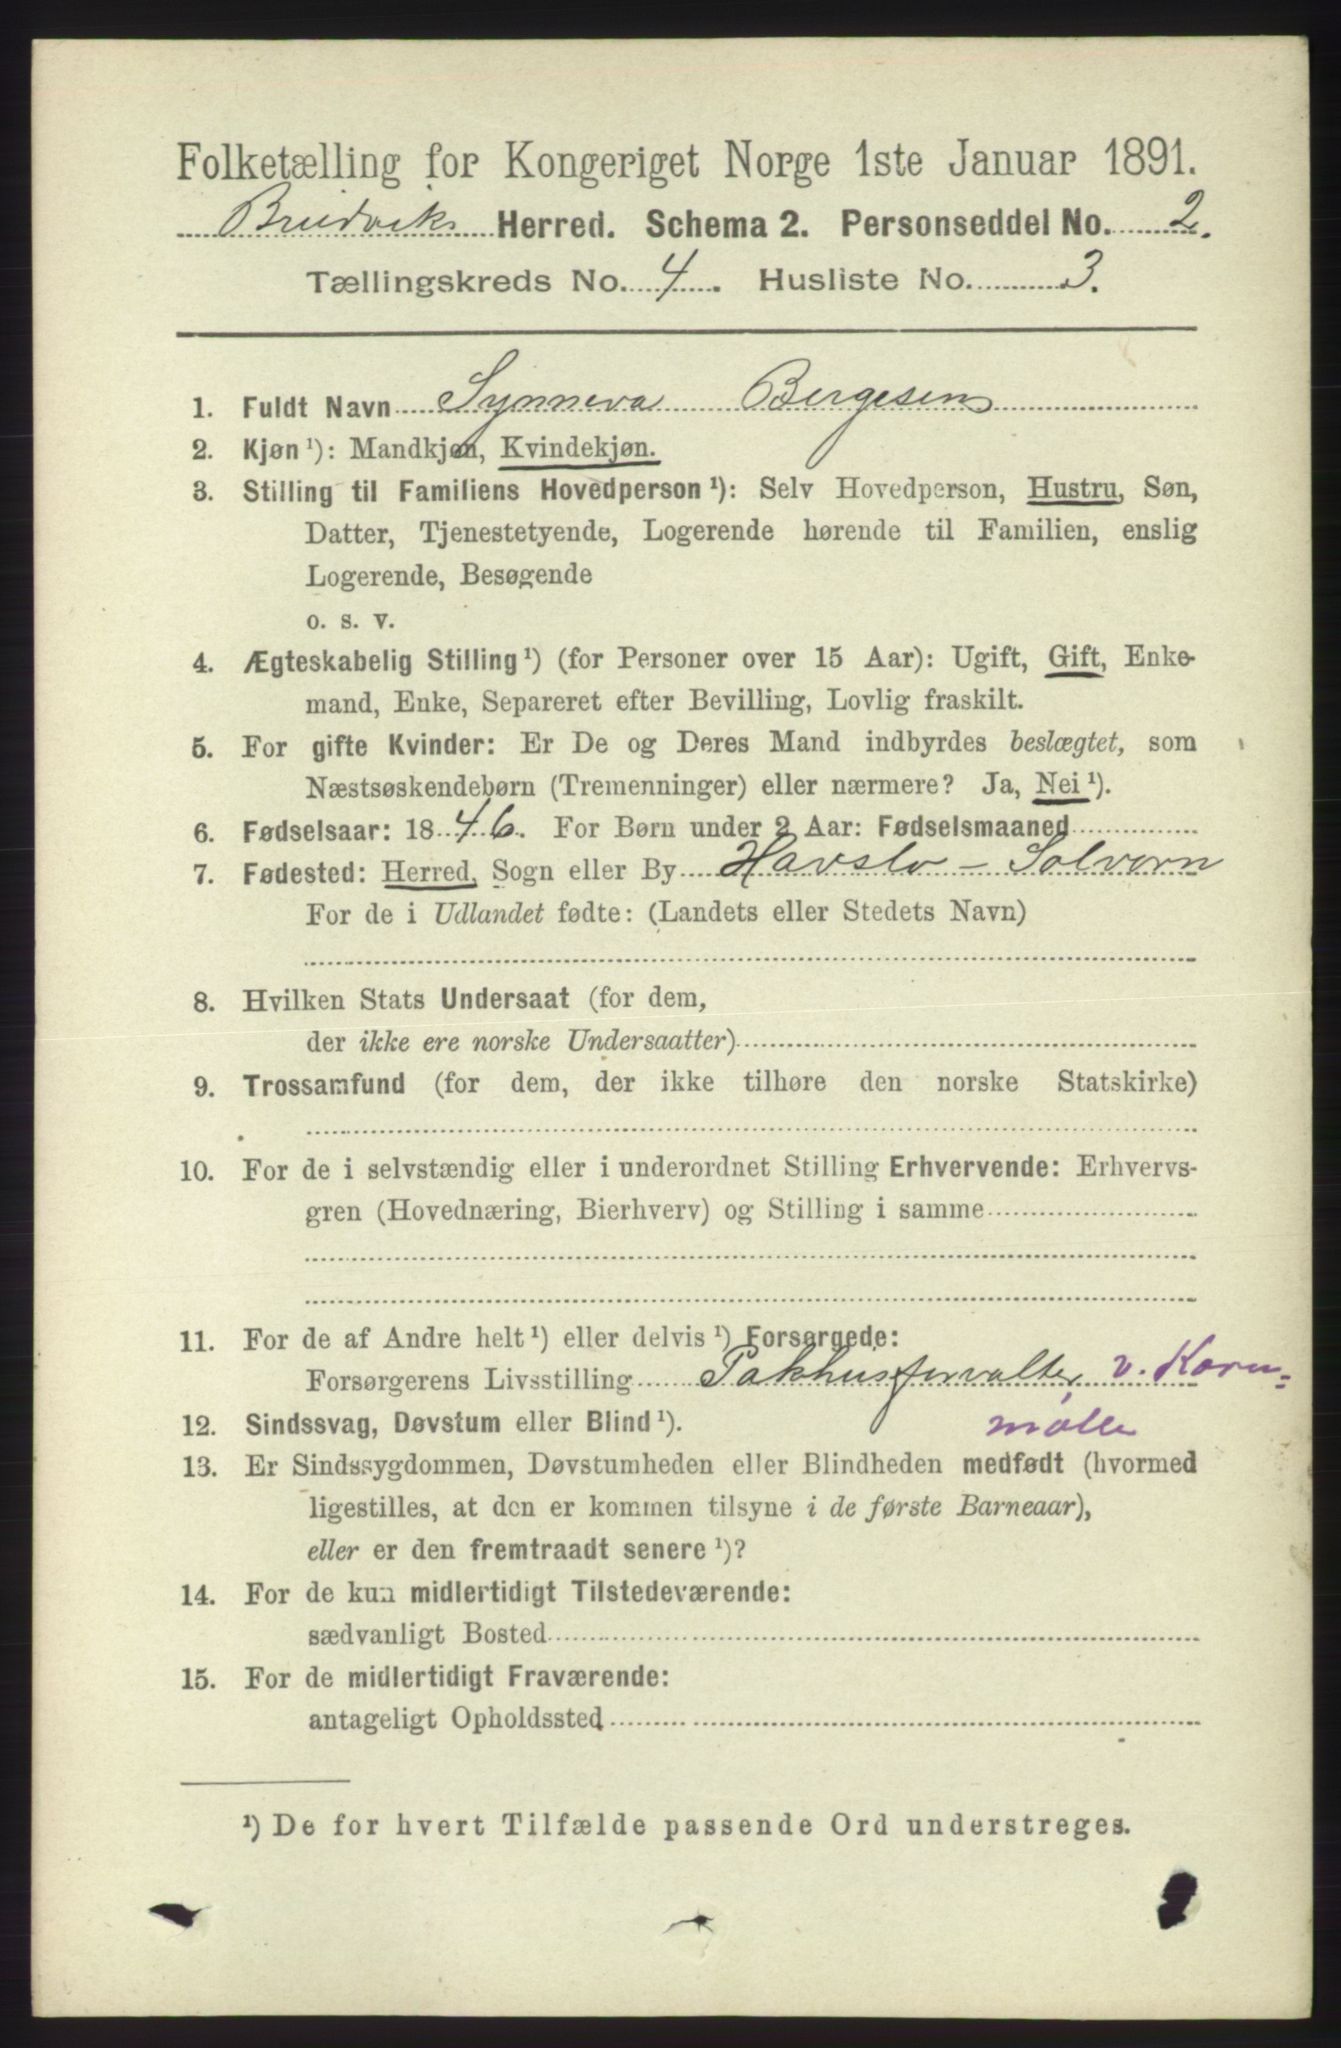 Folketælling for Kongeriget Norge 1ste Januar 1891.
Bruviks Herred. Schema 2. Personseddel No. 2.
Tællingskreds No. 4. Husliste No. 3.
1. Fuldt Navn Synneva Bergesen
2. Kjøn ¹): Mandkjøn, Kvindekjøn.
3. Stilling til Familiens Hovedperson ¹): Selv Hovedperson, Hustru, Søn,
Datter, Tjenestetyende, Logerende hørende til Familien, enslig
Logerende, Besøgende
o. s. v.
4. Ægteskabelig Stilling ¹) (for Personer over 15 Aar): Ugift, Gift, Enke-
mand, Enke, Separeret efter Bevilling, Lovlig fraskilt.
5. For gifte Kvinder: Er De og Deres Mand indbyrdes beslægtet, som
Næstsøskendebørn (Tremenninger) eller nærmere? Ja, Nei ¹).
6. Fødselsaar: 1846. For Børn under 2 Aar: Fødselsmaaned
7. Fødested: Herred, Sogn eller By Havslo - Solvorn
For de i Udlandet fødte: (Landets eller Stedets Navn)
8. Hvilken Stats Undersaat (for dem,
der ikke ere norske Undersaatter)
9. Trossamfund (for dem, der ikke tilhøre den norske Statskirke)
10. For de i selvstændig eller i underordnet Stilling Erhvervende: Erhvervs-
gren (Hovednæring, Bierhverv) og Stilling i samme
11. For de af Andre helt ¹) eller delvis ¹) Forsørgede:
Forsørgerens Livsstilling Pakhusforvalter v. Korn-
mølle
12. Sindssvag, Døvstum eller Blind ¹).
13. Er Sindssygdommen, Døvstumheden eller Blindheden medfødt (hvormed
ligestilles, at den er kommen tilsyne i de første Barneaar),
eller er den fremtraadt senere ¹)?
14. For de kun midlertidigt Tilstedeværende:
sædvanligt Bosted
15. For de midlertidigt Fraværende:
antageligt Opholdssted
¹) De for hvert Tilfælde passende Ord understreges.